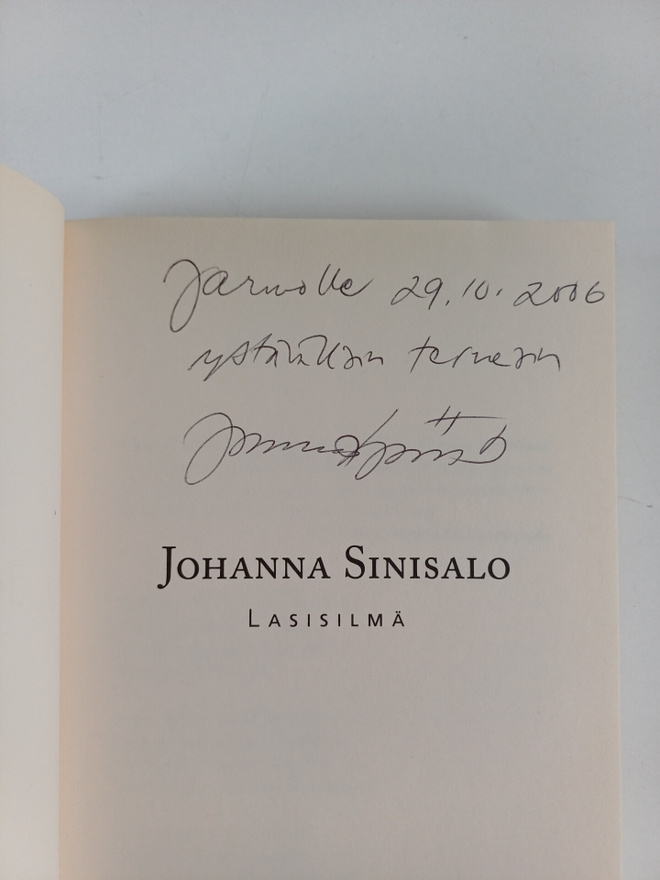 Jarnolle 29.10.2006
ystävällisin terveisin
JOHANNA SINISALO
LASISILMÄ